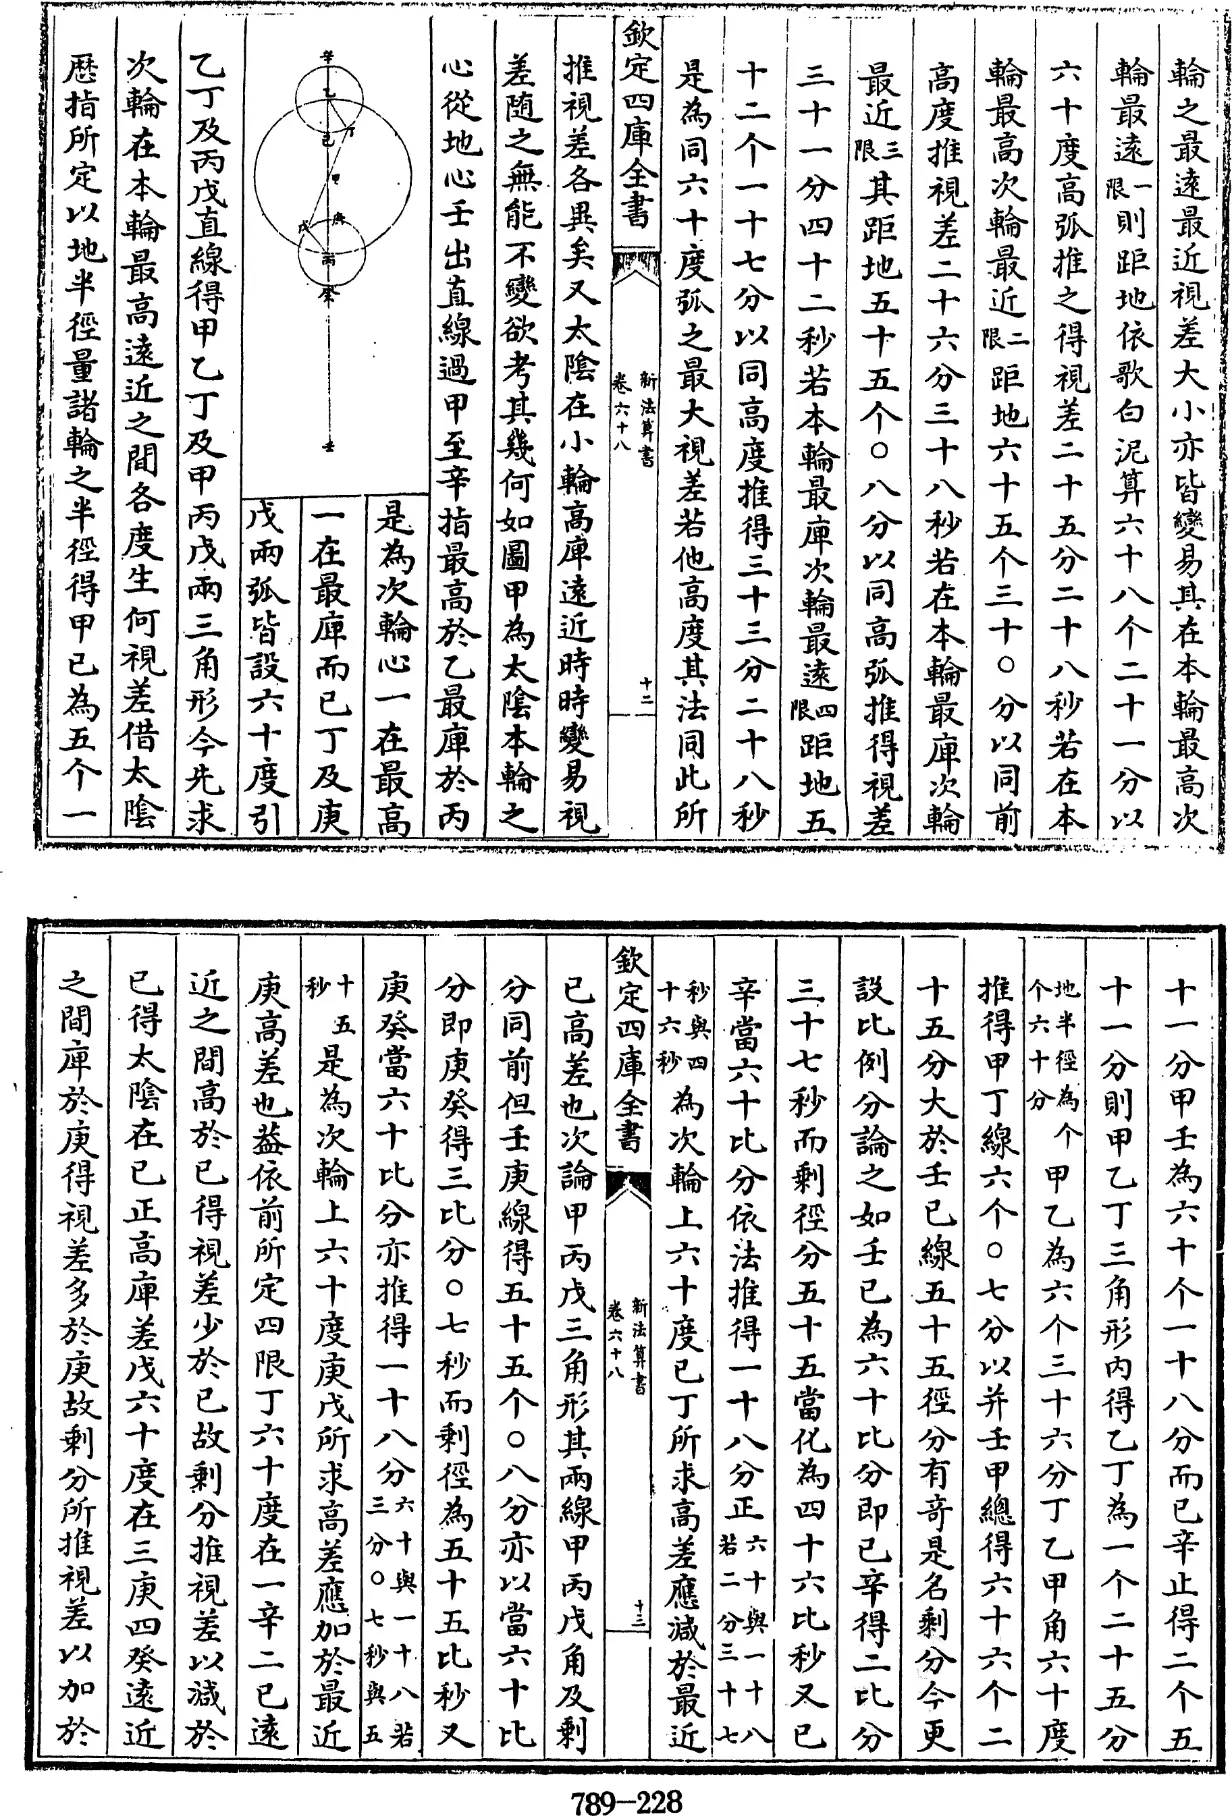 輪之最遠最近視差大小亦皆變易其在本輪最高次
輪最遠限一則距地依歌白泥算六十八个二十一分以
六十度高弧推之得視差二十五分二十八秒若在本
輪最高次輪最近限二距地六十五个三十〇分以同前
高度推視差二十六分三十八秒若在本輪最庳次輪
最近限三其距地五十五个〇八分以同高弧推得視差
三十一分四十二秒若本輪最庳次輪最遠限四距地五
十二个一十七分以同高度推得三十三分二十八秒
是為同六十度弧之最大視差若他高度其法同此所
欽定四庫全書
新法算書
卷六十八
十二
推視差各異矣又太陰在小輪高庳遠近時時變易視
差隨之無能不變欲考其幾何如圖甲為太陰本輪之
心從地心壬出直線過甲至辛指最高於乙最庳於丙
辛
乙
丁
己
甲
庚
戊
丙
癸
壬
是為次輪心一在最高
一在最庳而已丁及庚
戊兩弧皆設六十度引
乙丁及丙戊直線得甲乙丁及甲丙戊兩三角形今先求
次輪在本輪最高遠近之間各度生何視差借太陰
歷指所定以地半徑量諸輪之半徑得甲已為五个一
十一分甲壬為六十个一十八分而已辛止得二个五
十一分則甲乙丁三角形内得乙丁為一个二十五分
地半徑為个
个六十分
甲乙為六个三十六分丁乙甲角六十度
推得甲丁線六个〇七分以并壬甲總得六十六个二
十五分大於壬已線五十五徑分有奇是名剩分今更
設比例分論之如壬已為六十比分即已辛得二比分
三十七秒而剩徑分五十五當化為四十六比秒又已
辛當六十比分依法推得一十八分正
六十與一十八
若二分三十七
秒與四
十六秒
為次輪上六十度已丁所求高差應減於最近
欽定四庫全書
新法算書
卷六十八
十三
已高差也次論甲丙戊三角形其兩線甲丙戊角及剩
分同前但壬庚線得五十五个〇八分亦以當六十比
分即庚癸得三比分〇七秒而剩徑為五十五比秒又
庚癸當六十比分亦推得一十八分
六十與一十八若
三分〇七秒與五
十五
秒
是為次輪上六十度庚戊所求高差應加於最近
庚高差也葢依前所定四限丁六十度在一辛二已遠
近之間高於已得視差少於已故剩分推視差以減於
已得太陰在已正高庳差戊六十度在三庚四癸遠近
之間庳於庚得視差多於庚故剩分所推視差以加於
789-228